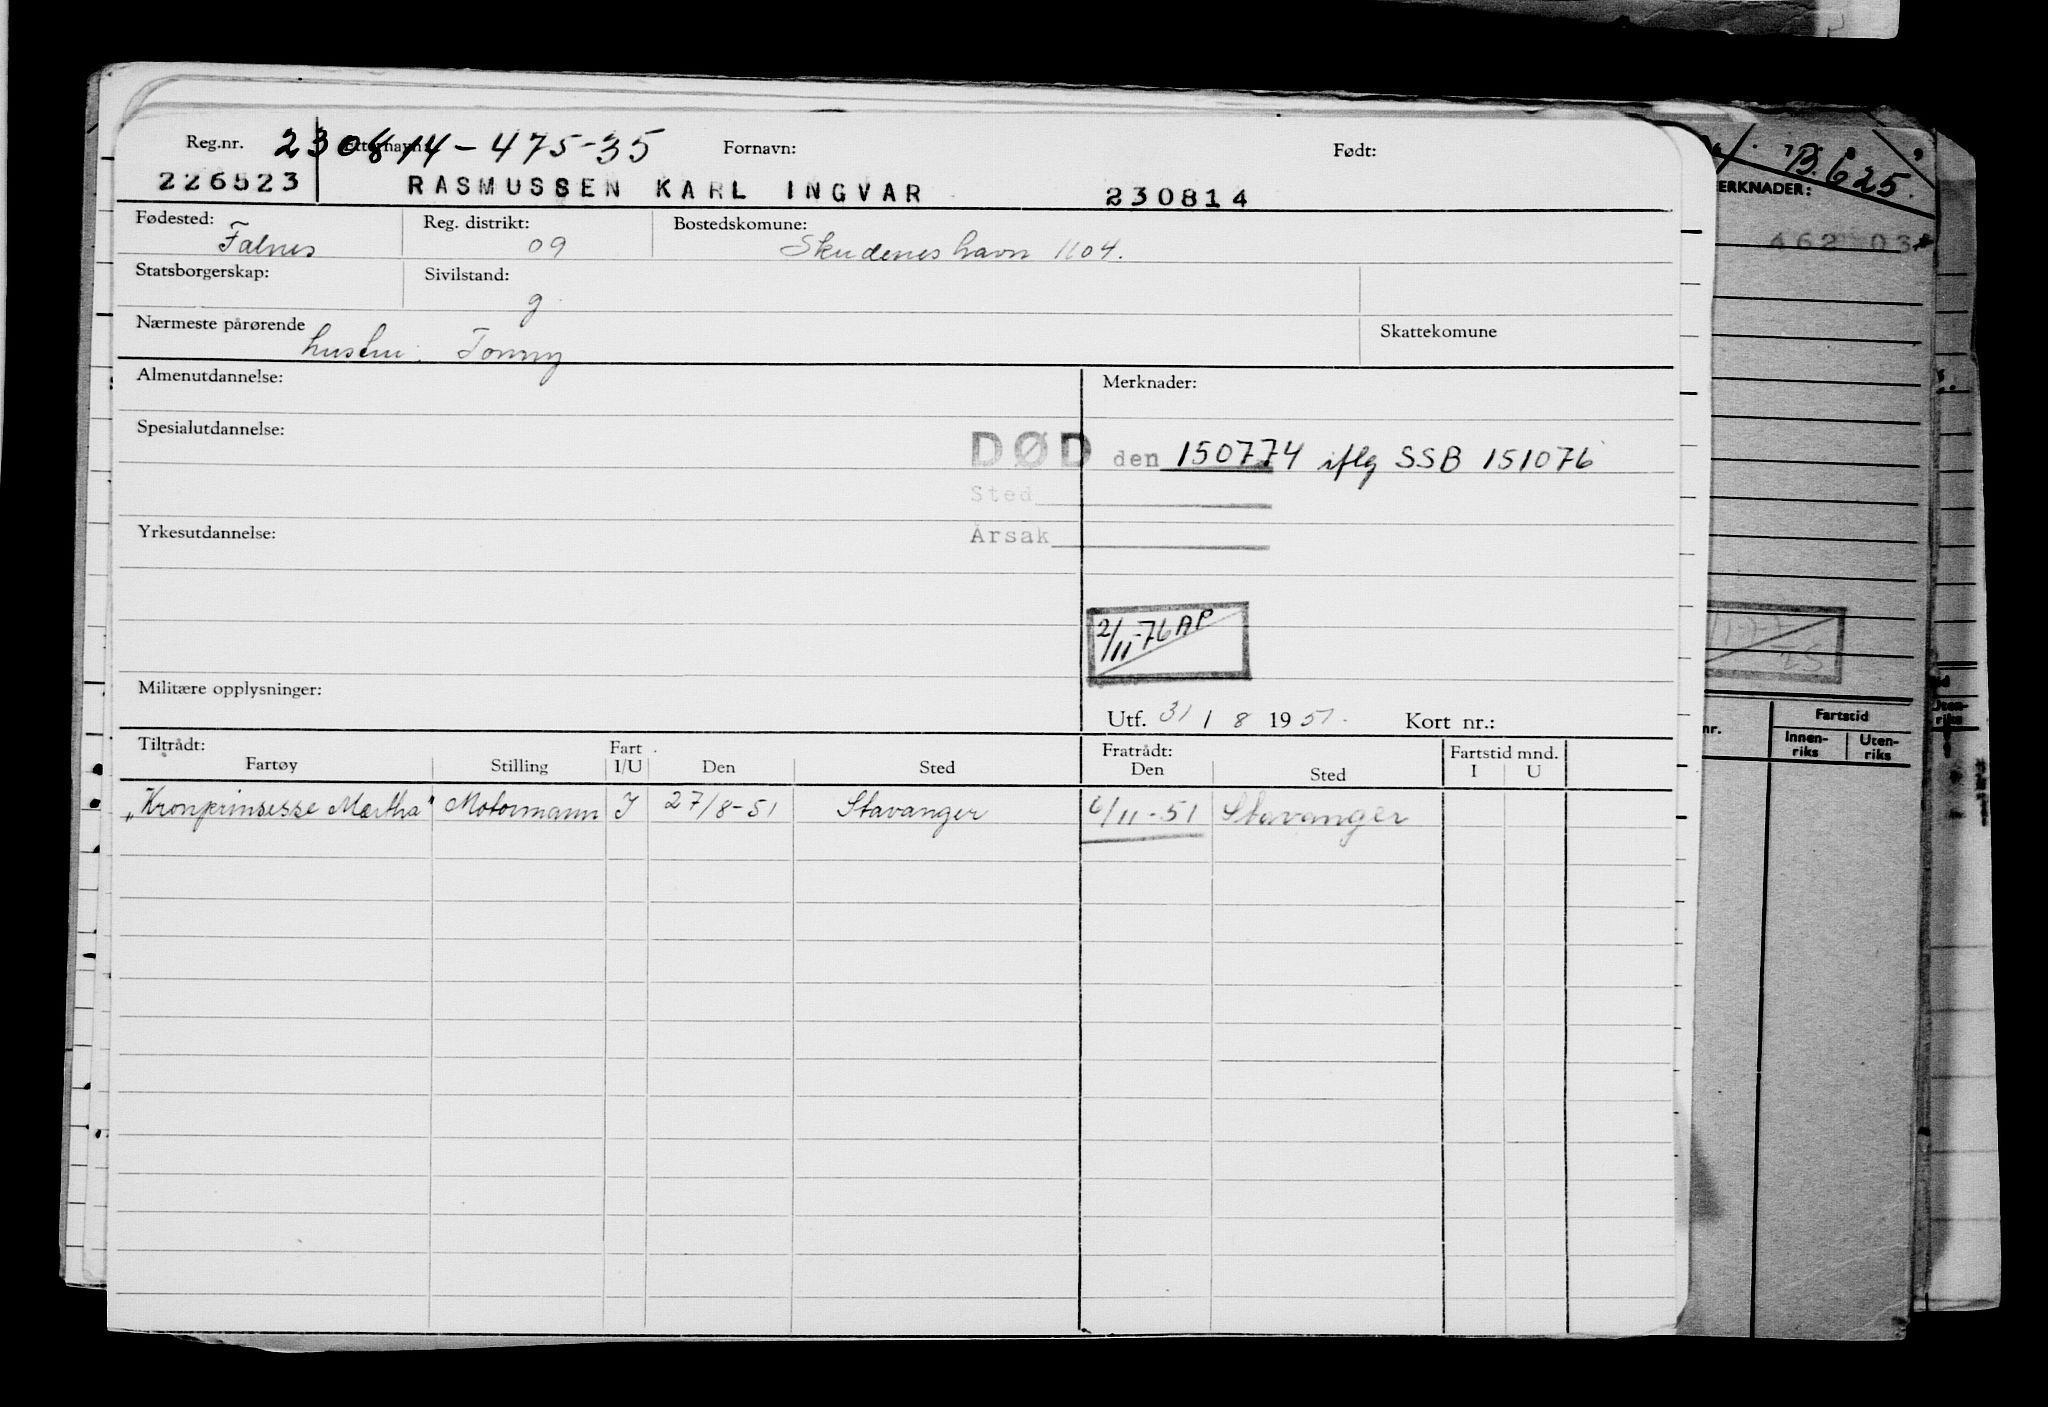 Reg.nr. 230814-475-35 Etternavn: Fornavn: Født:
226523 RASMUSSEN KARL INGVAR 230814
Fødested: Falnes Reg. distrikt: 09 Bostedskomune: Skudeneshavn 1104.
Statsborgerskap: Sivilstand: g
Nærmeste pårørende hustru: Tonny Skattekomune
Almenutdannelse: Merknader:
Spesialutdannelse:
DØD den 150774 iflg SSB 151076
Sted
Årsak
Yrkesutdannelse:
2/11-76 AP
Militære opplysninger:
Utf. 31 / 8 1951. Kort nr.:
Tiltrådt: Fart Fratrådt: Fartstid mnd.
Fartøy Stilling I/U Den Sted Den Sted I U
"Kronprinsesse Märtha" Motormann I 27/8-51 Stavanger 6/11-51 Stavanger
B. 625.
ERKNADER:
462 03*
25
nr. Fartstid
Innen-riks Uten-riks
Uten-riks